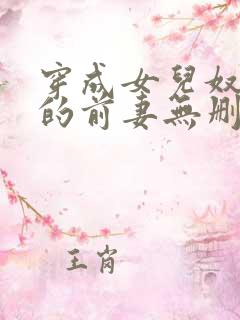 穿成女兒奴
的前妻無刪
王肖